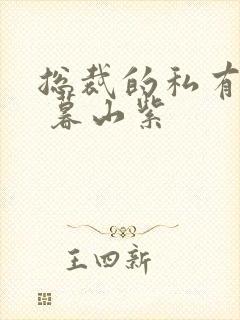 总裁的私有
暮山紫
王四新